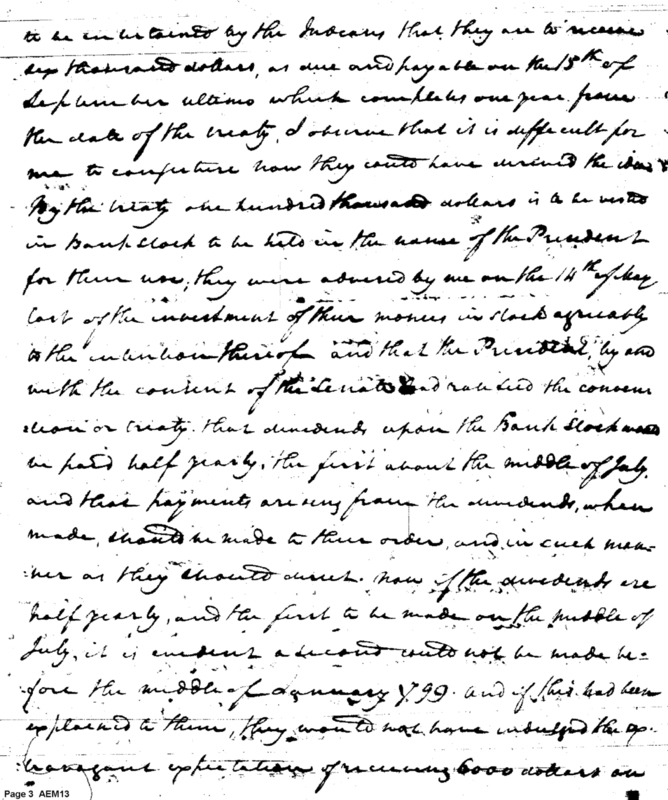 to be entertained by the Indians that they are to receive
six thousand dollars, as due and payable on the 15th of
September ultimo which completes one year from
the date of the treaty, I observe that it is difficult for
me to conjecture how they could have derived the idea
By the treaty one hundred thousand dollars is to be vested
in Bank Stock to be held in the name of the President
for their use; they were advised by me on the 14th of May
last of the investment of their monies in stock agreeably
to the intention thereof and that the President, by and
with the consent of the Senate had ratified the conven
:tion or treaty. that dividends upon the Bank Stock would
be paid half yearly, the first about the middle of July.
and that payments arising from the dividends, when
made, should be made to their order, and in such man=
:ner as they should direct. now if the dividends are
half yearly, and the first to be made on the middle of
July, it is evident a second could not be made be=
fore the middle of January 1799. and if this had been
explained to them, they would not have indulged the ex
travagant expectation of receiving 6000 dollars on
Page 3 AEM13